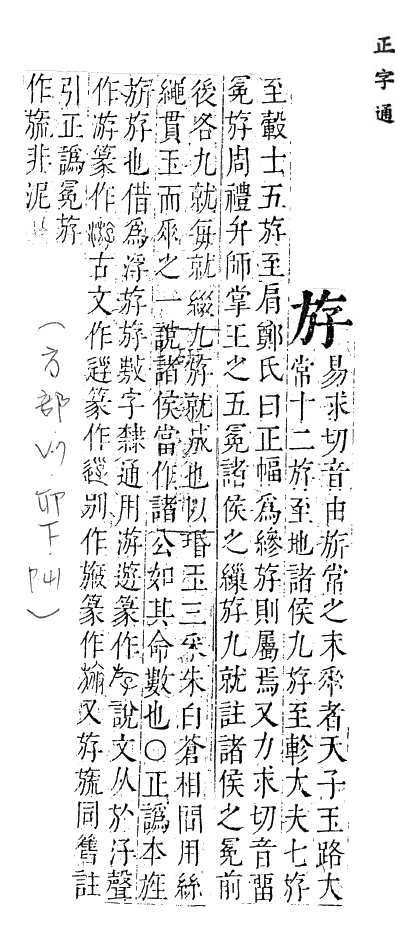 正字通
斿
易求切音由旂常之末垂者天子玉路大
常十二斿至地諸侯九斿至軫大夫七斿
至轂士五斿至肩鄭氏曰正幅為縿斿則屬焉又力求切音畱
冕斿周禮弁師掌王之五冕諸侯之繅斿九就註諸侯之冕前
後各九就每就繅九斿就成也以瑉玉三采朱白蒼相間用絲
繩貫玉而垂之一說諸侯當作諸公如其命數也○正譌本旌
斿也借為浮斿斿數字隸通用游遊篆作說文从㫃汙聲
作游篆作古文作篆作別作篆作又斿旒同舊註
引正譌冕斿
作旒非泥
(方部
V.7
卯下
P41)